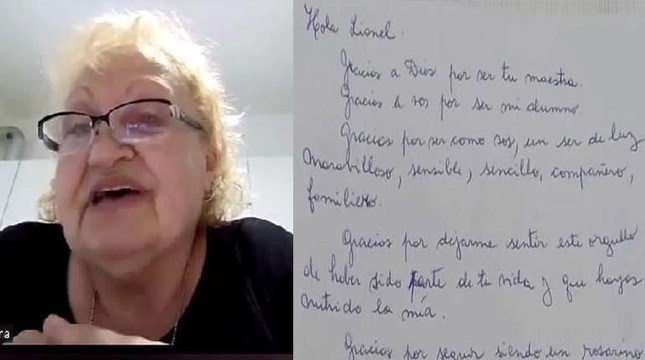 Hola Lionel.
Gracias a Dios por ser tu maestra.
Gracias a vos por ser mi alumno.
Gracias por ser como sos, un ser de luz
maravilloso, sensible, sencillo, compañero,
familiero.
Gracias por dejarme sentir este orgullo
de haber sido parte de tu vida y que hayas
nutrido la mía.
Gracias por seguir siendo un rosarino
ra